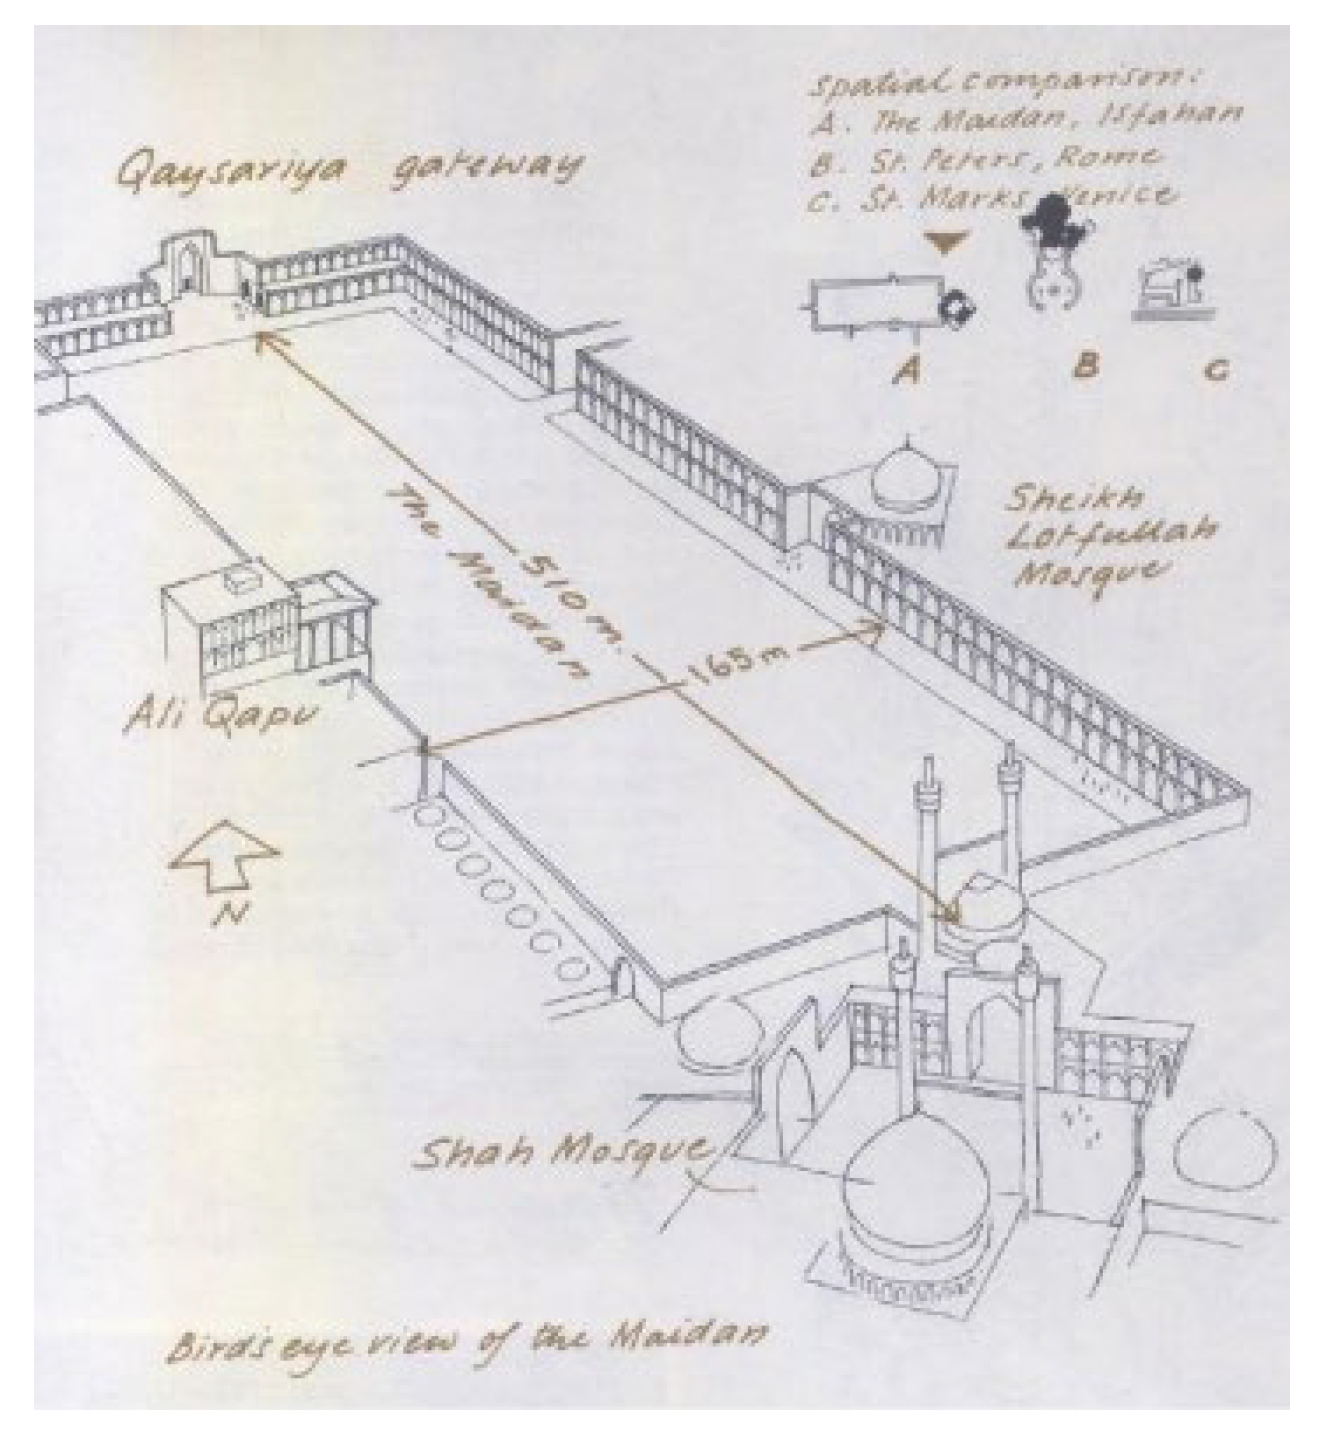 Spatial comparison:
A. The Maidan, Isfahan
B. St. Peters, Rome
C. St. Marks, Venice
Qaysariya gateway
A
B
C
Sheikh
Lotfullah
Mosque
The Maidan
510 m.
165 m
Ali Qapu
N
Shah Mosque
Bird's eye view of the Maidan